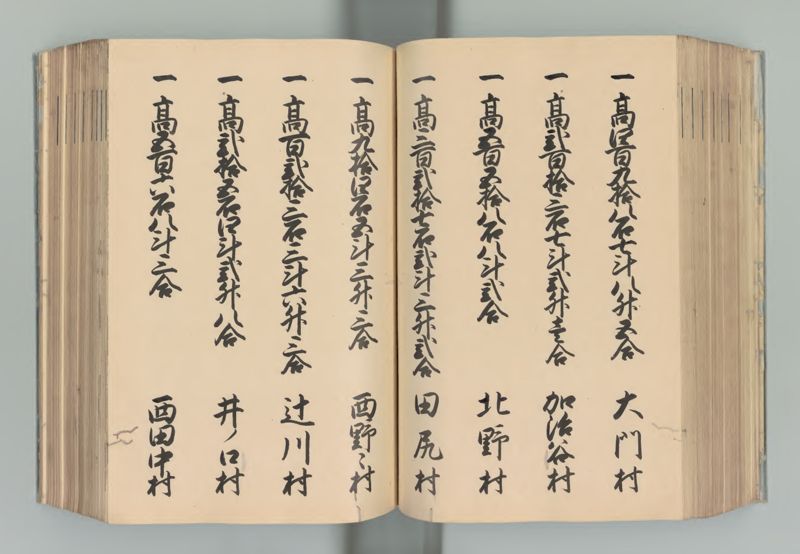 一 高四百九拾八石七斗八升五合 大門村
一 高弐百拾三石七斗弐升壱合 加治谷村
一 高五百五拾八石八斗弐合 北野村
一 高三百弐拾七石弐斗三升弐合 田尻村
一 高九拾四石五斗三升三合 西野々村
一 高百弐拾三石三斗六升三合 辻川村
一 高弐拾五石四斗弐升八合 井ノ口村
一 高五百六石八斗三合 西田中村